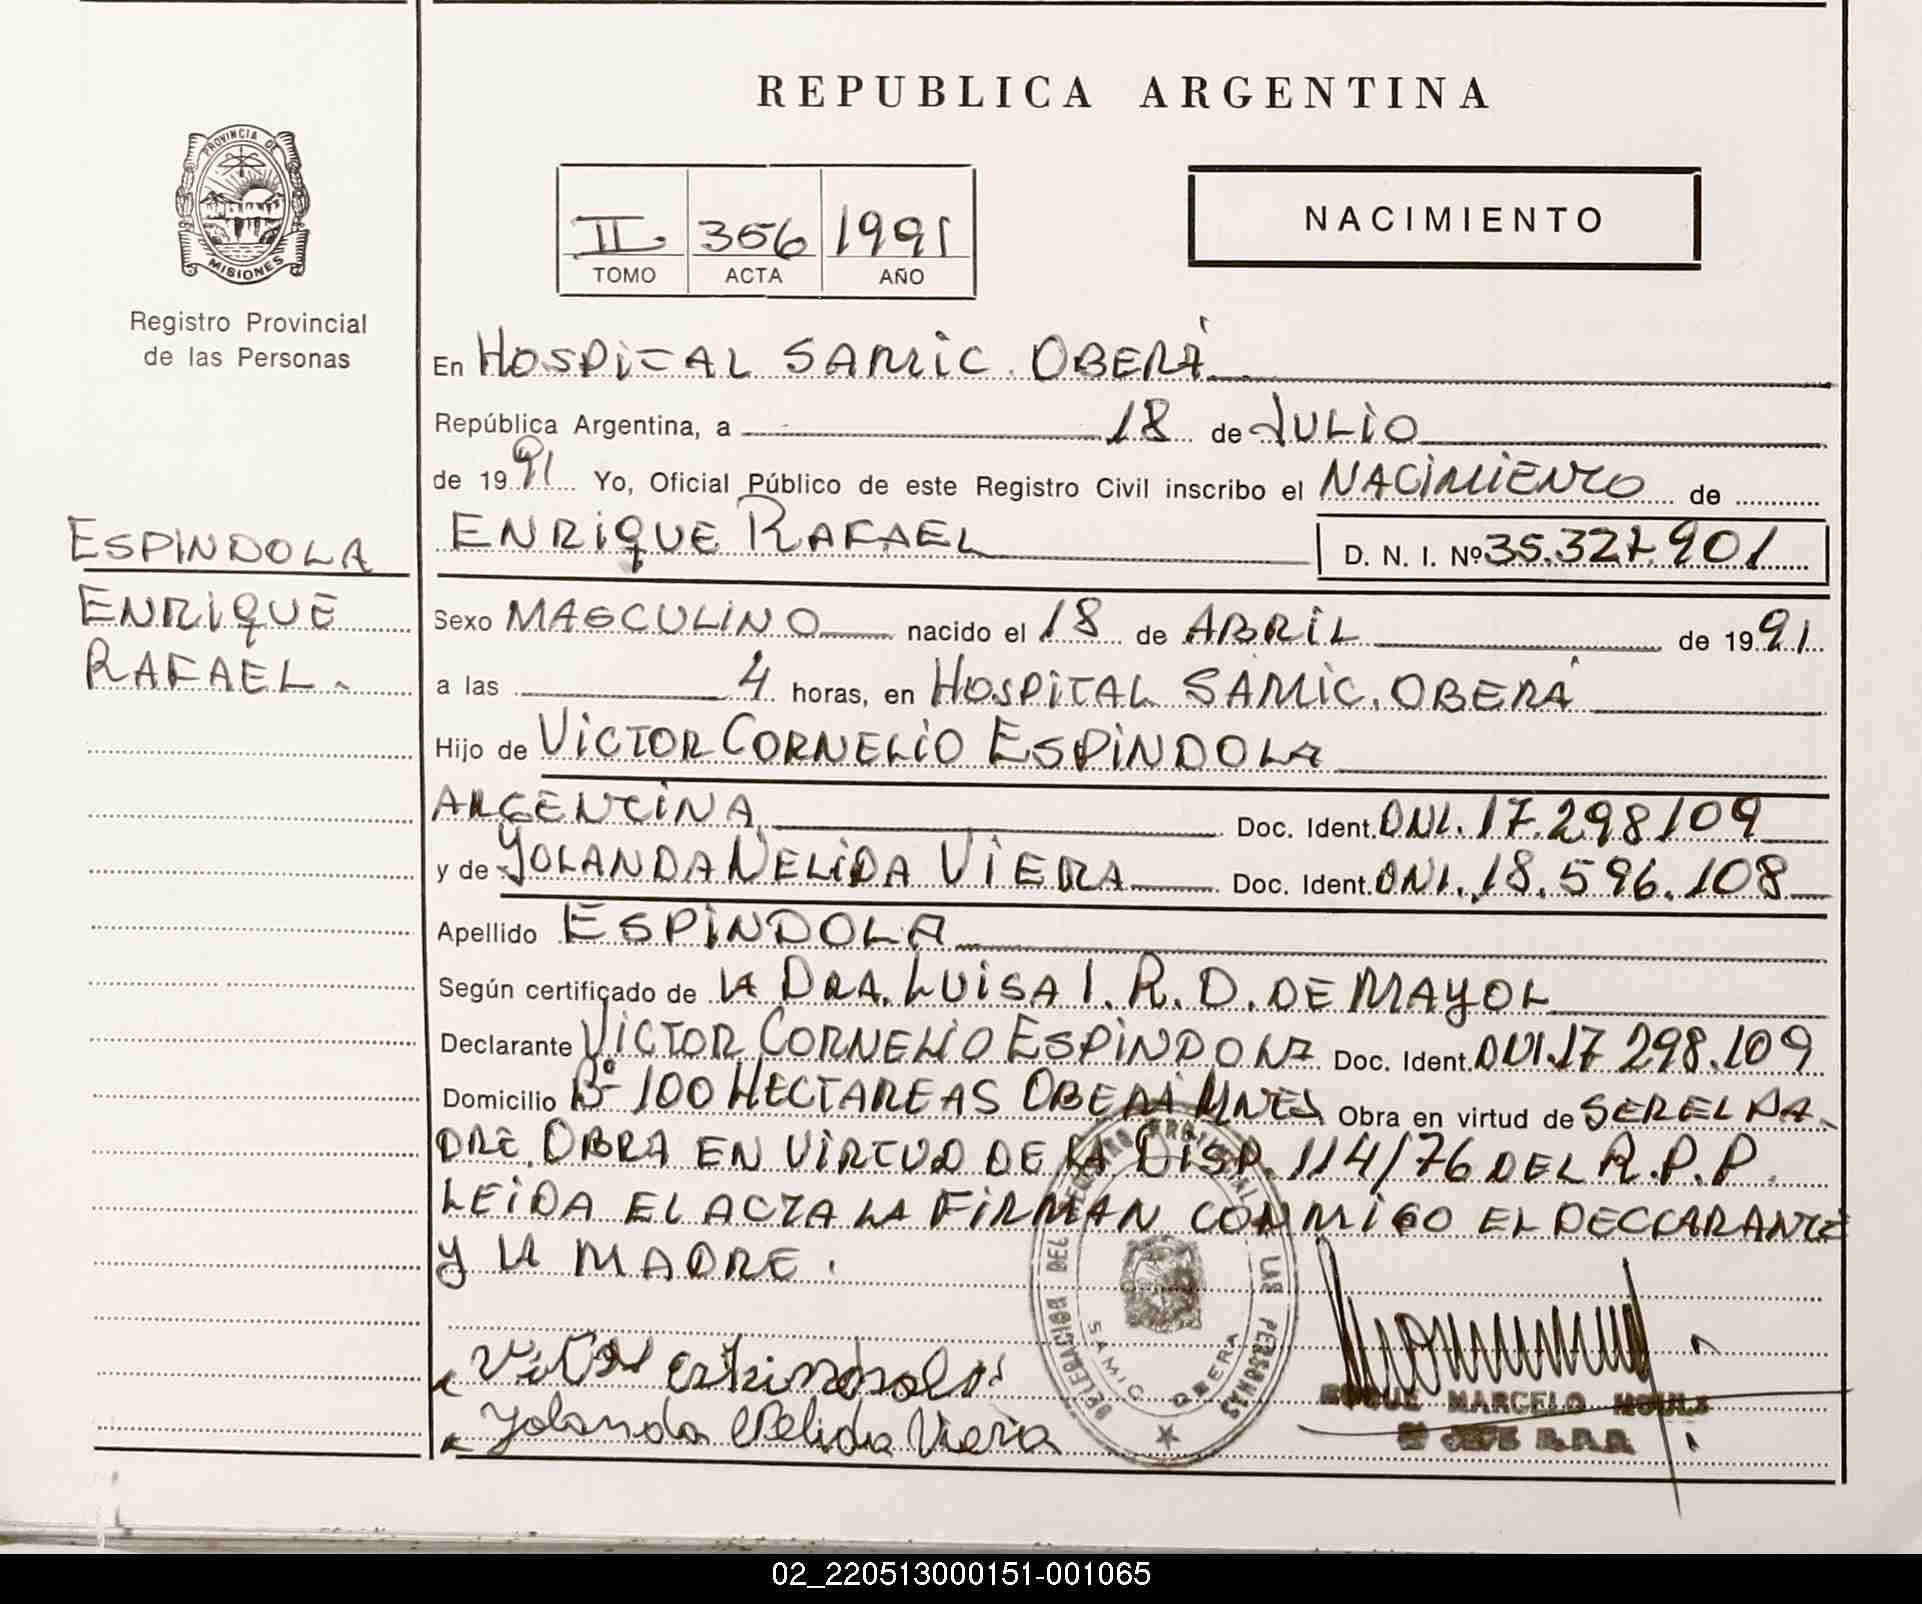 REPUBLICA ARGENTINA
PROVINCIA DE
MISIONES
Registro Provincial
de las Personas
II 356 1991
TOMO ACTA AÑO
NACIMIENTO
En HOSPITAL SAMIC. OBERÁ
República Argentina, a 18 de JULIO
de 1991 Yo, Oficial Público de este Registro Civil inscribo el NACIMIENTO de
ENRIQUE RAFAEL D. N. I. Nº 35.327.901
ESPINDOLA
ENRIQUE
RAFAEL.
Sexo MASCULINO nacido el 18 de ABRIL de 1991
a las 4 horas, en HOSPITAL SAMIC. OBERÁ
Hijo de VICTOR CORNELIO ESPINDOLA
ARGENTINA Doc. Ident. DNI. 17.298109
y de YOLANDA NELIDA VIERA Doc. Ident. DNI. 18.596.108
Apellido ESPINDOLA
Según certificado de LA DRA. LUISA I. R. D. DE MAYOL
Declarante VICTOR CORNELIO ESPINDOLA Doc. Ident. DNI.17 298.109
Domicilio Bº 100 HECTAREAS OBERÁ MNES Obra en virtud de SER EL PA-
DRE. OBRA EN VIRTUD DE LA DISP. 114/76 DEL R.P.P.
LEIDA EL ACTA LA FIRMAN CONMIGO EL DECLARANTE
Y LA MADRE.
DELEGACION DEL REGISTRO PROVINCIAL DE LAS PERSONAS
SAMIC OBERA
Yolanda Nelida Viera
MARCELO
JEFE R.P.P.
02_220513000151-001065